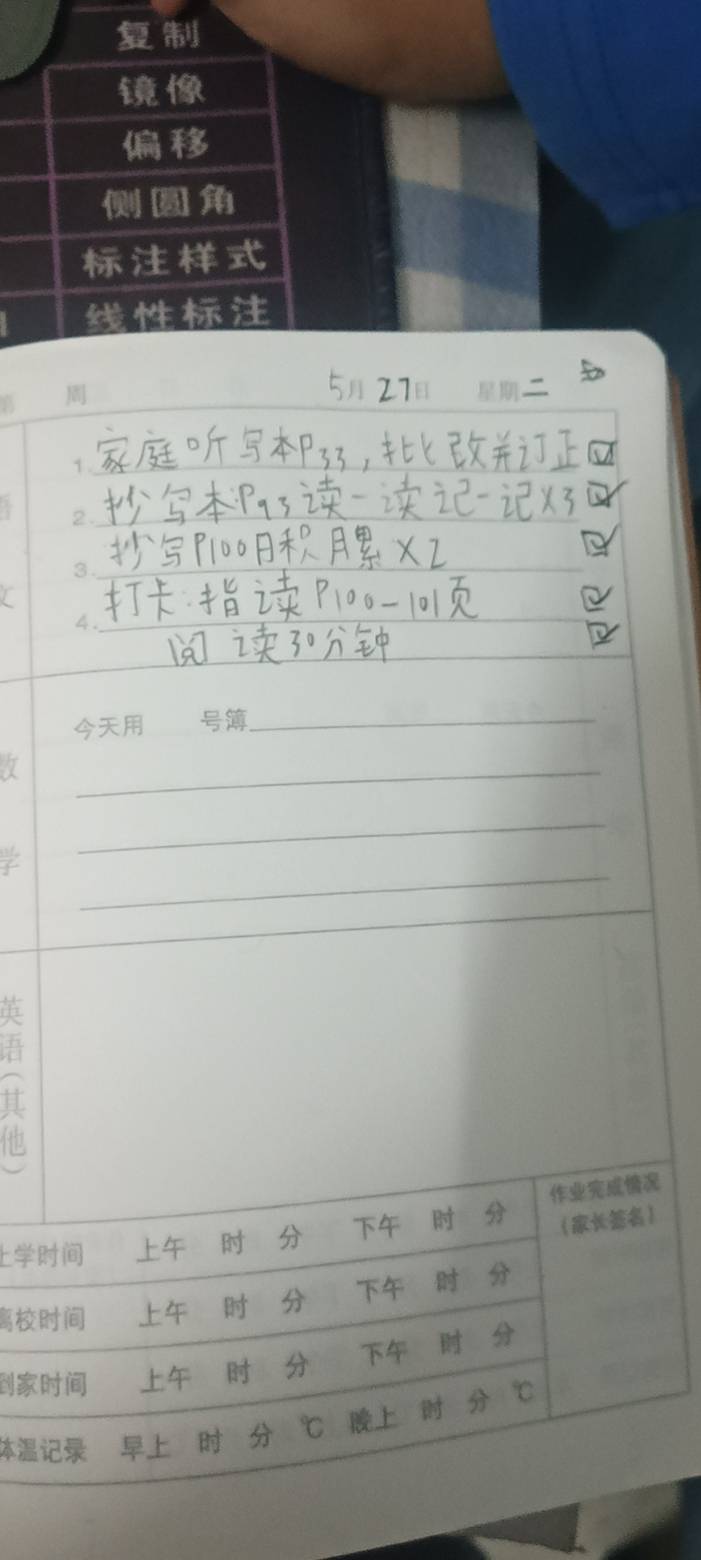 复制
镜像
偏移
侧圆角
标注样式
线性标注
第 周 5月27日 星期二
语文
1. 家庭听写本P33，批改并订正
2. 抄写本:P93读一读记一记×3
3. 抄写P100日积月累×2
4. 打卡:指读P100-101页
阅读30分钟
数学
今天用 号簿
英语(其他)
上学时间 上午 时 分 下午 时 分
离校时间 上午 时 分 下午 时 分
到家时间 上午 时 分 下午 时 分
体温记录 早上 时 分 ℃ 晚上 时 分 ℃
作业完成情况
(家长签名)